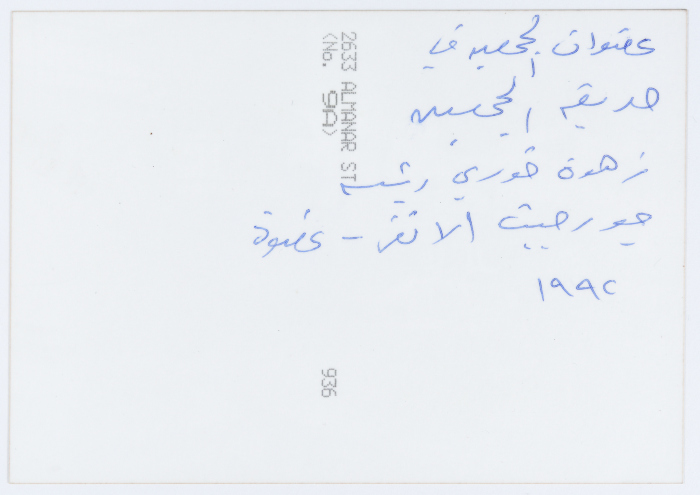 عضوات الجمعية في
حديقة الجمعية
زهوة خوري رئيسة
جورجيت الاتغر - عضوة
١٩٩٢
2633 ALMANAR ST
<No. 9A>
936